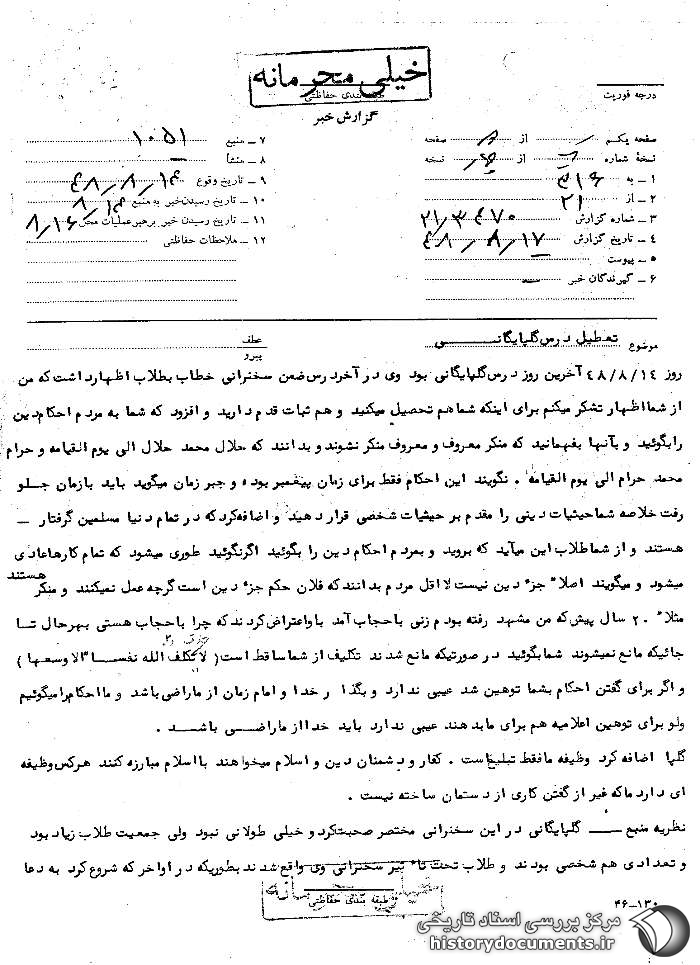 خیلی محرمانه
طبقه بندی حفاظتی
گزارش خبر
درجه فوریت
صفحه یکم از صفحه
نسخهٔ شماره از نسخه
۱ ـ به ۳۱۶
۲ ـ از ۲۱
۳ ـ شماره گزارش ۲۱/۳۴۷۰
۴ ـ تاریخ گزارش ۴۸/۸/۱۷
۵ ـ پیوست
۶ ـ گیرندگان خبر
۷ ـ منبع ۱۰۵۱
۸ ـ منشأ
۹ ـ تاریخ وقوع ۴۸/۸/۱۴
۱۰ ـ تاریخ رسیدن خبر به منبع ۸/۱۴
۱۱ ـ تاریخ رسیدن خبر برهبر عملیات محل ۸/۱۶
۱۲ ـ ملاحظات حفاظتی
موضوع تعطیل درس گلپایگانـــی
عطف
پیرو
روز ۴۸/۸/۱۴ آخرین روز درس گلپایگانی بود وی در آخر درس ضمن سخنرانی خطاب بطلاب اظهار داشت که من
از شما اظهار تشکر میکنم برای اینکه شما هم تحصیل میکنید و هم ثبات قدم دارید و افزود که شما به مردم احکام دین
را بگوئید و بآنها بفهمانید که منکر معروف و معروف منکر نشوند و بدانند که حلال محمد حلال الی یوم القیامه و حرام
محمد حرام الی یوم القیامه . نگویند این احکام فقط برای زمان پیغمبر بوده و جبر زمان میگوید باید بازمان جلو
رفت خلاصه شما حیثیات دینی را مقدم بر حیثیات شخصی قرار دهید و اضافه کرد که در تمام دنیا مسلمین گرفتار ـ
هستند و از شما طلاب این میآید که بروید و بمردم احکام دین را بگوئید اگر نگوئید طوری میشود که تمام کارها عادی
میشود و میگویند اصلا" جزء دین نیست لااقل مردم بدانند که فلان حکم جزء دین است گرچه عمل نمیکنند و منکر هستند
مثلا" ۲۰ سال پیش که من مشهد رفته بودم زنی با حجاب آمد باو اعتراض کردند که چرا با حجاب هستی بهر حال تا
جائیکه مانع نمیشوند شما بگوئید در صورتیکه مانع شدند تکلیف از شما ساقط است ( لا تکلف الله نفسا" الا وسعها )
و اگر برای گفتن احکام بشما توهین شد عیبی ندارد و بگذار خدا و امام زمان از ما راضی باشد و ما احکام را میگوئیم
ولو برای توهین اعلامیه هم برای ما بدهند عیبی ندارد باید خدا از ما راضـی باشـد .
گلپا اضافه کرد وظیفه ما فقط تبلیغ است . کفار و دشمنان دین و اسلام میخواهند با اسلام مبارزه کنند هر کس وظیفه
ای دارد ما که غیر از گفتن کاری از دستمان ساخته نیست .
نظریه منبع ـــ گلپایگانی در این سخنرانی مختصر صحبت کرد و خیلی طولانی نبود ولی جمعیت طلاب زیاد بود
و تعدادی هم شخصی بودند و طلاب تحت تاثیر سخنرانی وی واقع شدند بطوریکه در اواخر که شروع کرد به دعا
طبقه بندی حفاظتی
۴۶-۱۳۰
مرکز بررسی اسناد تاریخی
historydocuments.ir